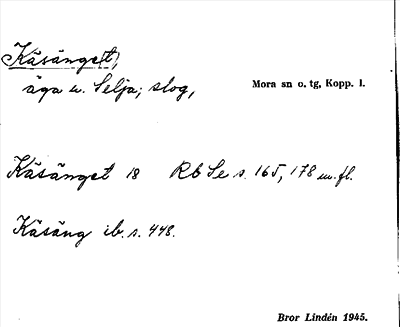 (Käsänget),
äga u. Selja; slog,
Mora sn o. tg, Kopp. l.
Käsänget 18 Rb Se s. 165, 178 m. fl.
Käsäng ib. s. 448.
Bror Lindén 1945.